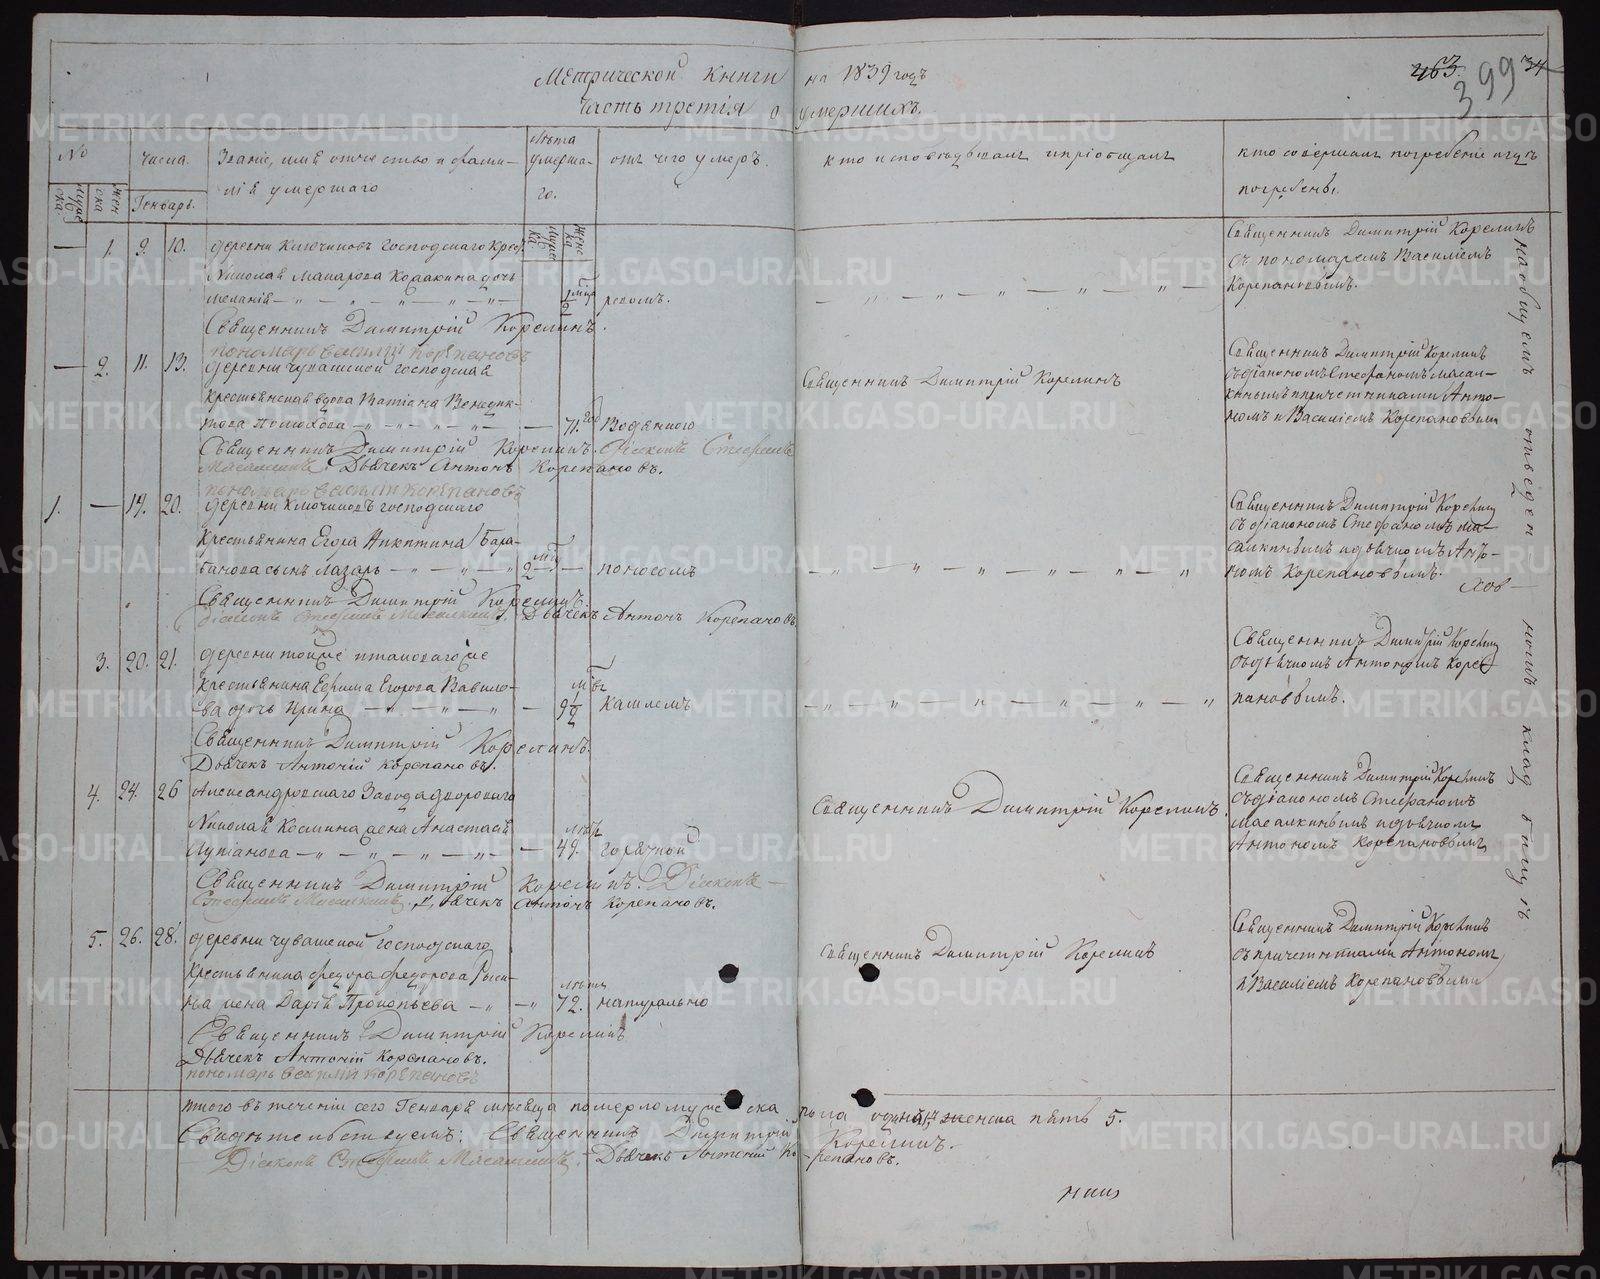 Метрической книги на 1839 годъ
Часть третія о умершихъ.
463. 399 34
№
числа.
Званіе, имя отчество и фами-
лія умершаго
лѣта
умерша-
го.
отъ чего умеръ.
кто исповѣдывалъ и пріобщалъ
кто совершалъ погребеніе и гдѣ
погребены.
мужес
ска.
жен
ска
Генварь.
мужес
ка.
женс
ка
— 1. 9. 10. деревни Ключиковъ господскаго крес.
Николая Макарова дочь
Меланія 1/2 мца родомъ.
Священникъ Димитрій Корелинъ.
пономарь василій корѣпановъ
Священникъ Димитрій Корелинъ
съ пономаремъ Василіемъ
Корепановымъ.
— 2. 11. 13. деревни чувашской господская
крестьянская вдова Татіана Венедик-
това — 71. год Водянною
Священникъ Димитрій Корелинъ. Діаконъ Стефанъ
Масалкинъ. Дьячекъ Антонъ Корепановъ.
пономарь василій корѣпановъ
Священникъ Димитрій Корелинъ
Священникъ Димитрій Корелинъ
съ діакономъ Стефаномъ Масал-
кинымъ и причетниками Анто-
номъ и Василіемъ Корепановыми
1. — 19. 20. деревни Ключиковъ господскаго
крестьянина Егора Никитина Бара-
банова сынъ Лазарь 2 — поносомъ
Священникъ Димитрій Корелинъ.
діаконъ Стефанъ Масалкинъ. Дьячекъ Антонъ Корепановъ.
Священникъ Димитрій Корелинъ
съ діакономъ Стефаномъ Ма-
салкинымъ и дьячкомъ Анто-
номъ Корепановымъ.
3. 20. 21. деревни тойже и таковагоже
крестьянина Ефима Егорова Вавило-
ва дочь Ирина — 9 1/2 кашлемъ
Священникъ Димитрій Корелинъ.
Дьячекъ Антоній Корепановъ.
Священникъ Димитрій Корелинъ
съ дьячкомъ Антономъ Коре-
пановымъ.
4. 24. 26 Александровскаго Завода дворового
Николая Космина жена Анастасія
Лукіанова — 49. лѣтъ горячкой
Священникъ Димитрій Корелинъ. Діаконъ
Стефанъ Масалкинъ. Дьячекъ Антонъ Корепановъ.
Священникъ Димитрій Корелинъ.
Священникъ Димитрій Корелинъ
съ діакономъ Стефаномъ
Масалкинымъ и дьячкомъ
Антономъ Корепановымъ
5. 26. 28. деревни чувашской господскаго
крестьянина федора федорова
жена Дарія Прокопьева — 72. лѣтъ натурально
Священникъ Димитрій Корелинъ
Дьячекъ Антоній Корепановъ.
пономарь василій корѣпановъ
Священникъ Димитрій Корелинъ
Священникъ Димитрій Корелинъ
съ причетниками Антономъ
и Василіемъ Корепановыми
на общемъ отведен
номъ кладбищѣ
итого въ теченіи сего Генваря мѣсяца померло мужеска пола одинъ, женска пять 5.
Свидѣтельствуемъ: Священникъ Димитрій Корелинъ.
Діаконъ Стефанъ Масалкинъ. Дьячекъ Антоній Корепановъ.
METRIKI.GASO-URAL.RU